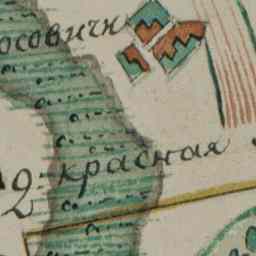 росовичи
2. красная